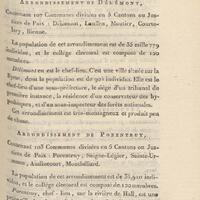 ARRONDISSEMENT DE DÉLÉMONT,
Contenant 107 Communes divisées en 5 Cantons ou Jus-
tices de Paix : Délémont, Lauffen, Moutier, Courte-
lary, Bienne.
La population de cet arrondissement est de 35 mille
et le collége électoral est composé de 120
membres.
Délémont en est le chef-lieu. C'est une ville située sur la
dont la population de 910 individus. Elle est le
chef-lieu d'une sous-préfecture, le siége d'un tribunal de
première instance, la résidence d'un conservateur des hypo-
thèques, et d'un sous-inspecteur des forêts nationales.
Cet arrondissement est très-montagneux et produit peu
de chose.
ARRONDISSEMENT DE PORENTRUY,
Contenant 108 Communes divisées en 5 Cantons ou Jus-
tices de Paix : Porentruy, Seigne-Légier, Sainte-Ur-
sanne, Audincourt, Montbéliard.
La population de cet arrondissement est de
et le collége électoral est composé de 120 membres.
Porentruy, chef-lieu, sur la rivière de Hall, est une